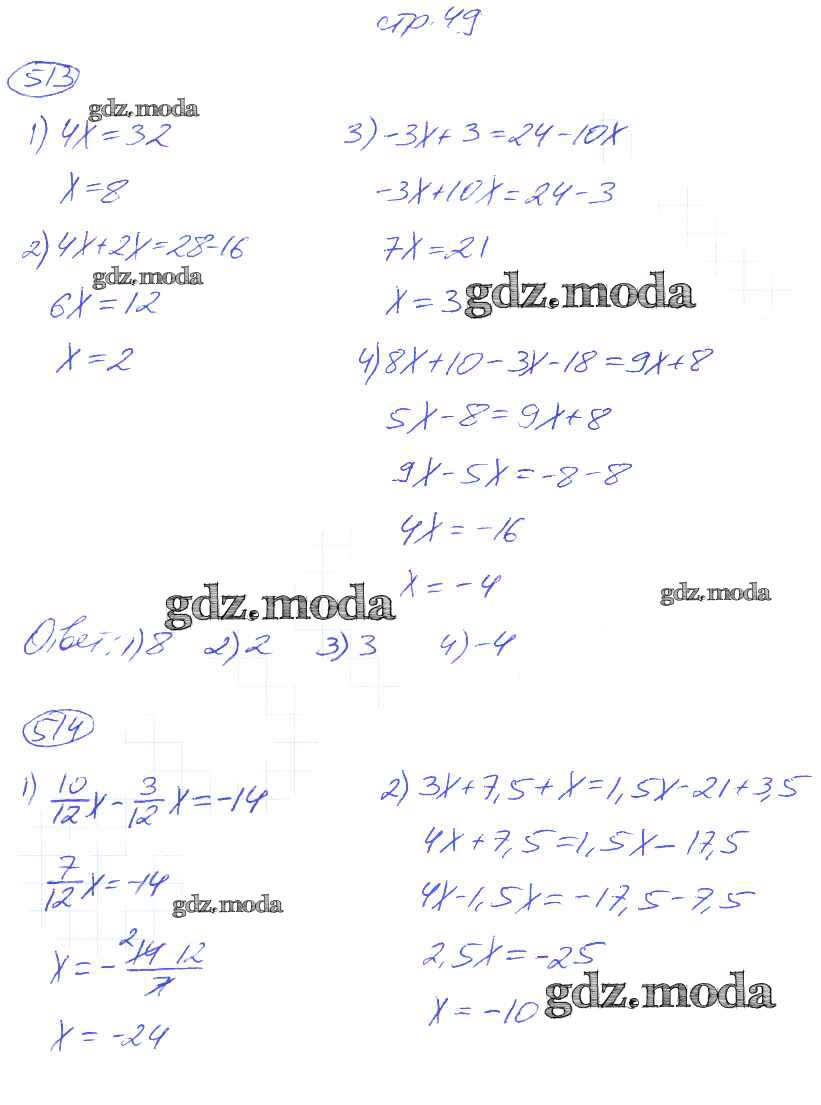 стр. 49
513
gdz.moda
1) 4x = 32
x = 8
2) 4x + 2x = 28 - 16
gdz.moda
6x = 12
x = 2
3) -3x + 3 = 24 - 10x
-3x + 10x = 24 - 3
7x = 21
x = 3
gdz.moda
4) 8x + 10 - 3x - 18 = 9x + 8
5x - 8 = 9x + 8
9x - 5x = -8 - 8
4x = -16
x = -4
gdz.moda
gdz.moda
Ответ: 1) 8 2) 2 3) 3 4) -4
514
1) 10/12 x - 3/12 x = -14
7/12 x = -14
gdz.moda
x = - 2 14 12 / 7
x = -24
2) 3x + 7,5 + x = 1,5x - 21 + 3,5
4x + 7,5 = 1,5x - 17,5
4x - 1,5x = -17,5 - 7,5
2,5x = -25
x = -10
gdz.moda